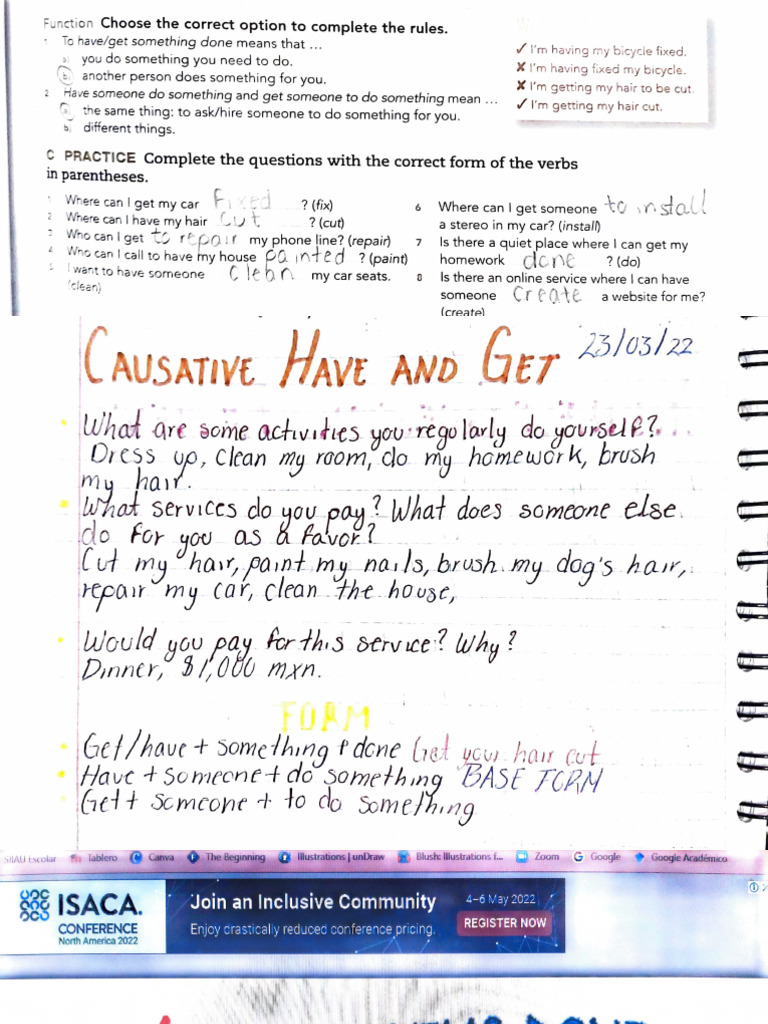 Function Choose the correct option to complete the rules.
1 To have/get something done means that ...
a) you do something you need to do.
b) another person does something for you.
2 Have someone do something and get someone to do something mean ...
a) the same thing: to ask/hire someone to do something for you.
b) different things.
✓ I'm having my bicycle fixed.
✗ I'm having fixed my bicycle.
✗ I'm getting my hair to be cut.
✓ I'm getting my hair cut.
C PRACTICE Complete the questions with the correct form of the verbs
in parentheses.
1 Where can I get my car fixed ? (fix)
2 Where can I have my hair cut ? (cut)
3 Who can I get to repair my phone line? (repair)
4 Who can I call to have my house painted ? (paint)
5 I want to have someone clean my car seats.
(clean)
6 Where can I get someone to install
a stereo in my car? (install)
7 Is there a quiet place where I can get my
homework done ? (do)
8 Is there an online service where I can have
someone create a website for me?
(create)
CAUSATIVE HAVE AND GET 23/03/22
What are some activities you regularly do yourself?
Dress up, clean my room, do my homework, brush
my hair.
What services do you pay? What does someone else
do for you as a favor?
Cut my hair, paint my nails, brush my dog's hair,
repair my car, clean the house,
Would you pay for this service? Why?
Dinner, $1,000 mxn.
FORM
Get/have + something + done Get your hair cut
Have + someone + do something BASE FORM
Get + someone + to do something
SIIAU Escolar Tablero Canva The Beginning Illustrations | unDraw Blush: Illustrations f... Zoom Google Google Académico
ISACA.
CONFERENCE
North America 2022
Join an Inclusive Community
Enjoy drastically reduced conference pricing.
4–6 May 2022
REGISTER NOW